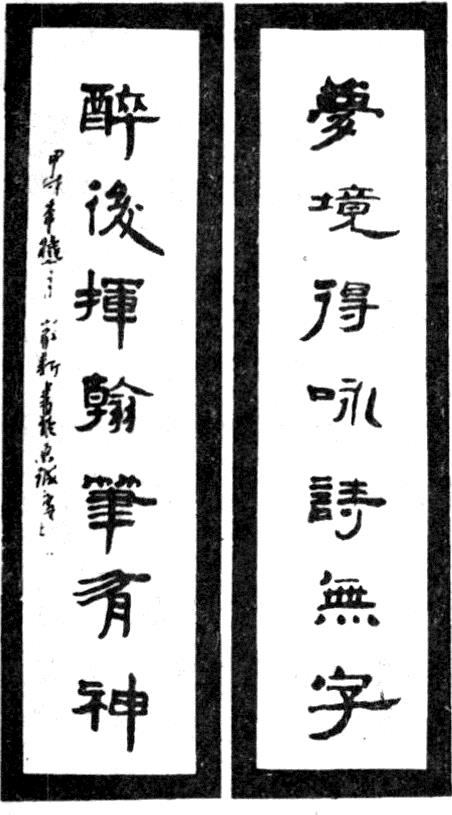 夢境得咏詩無字
醉後揮翰筆有神
甲戌年 新書於